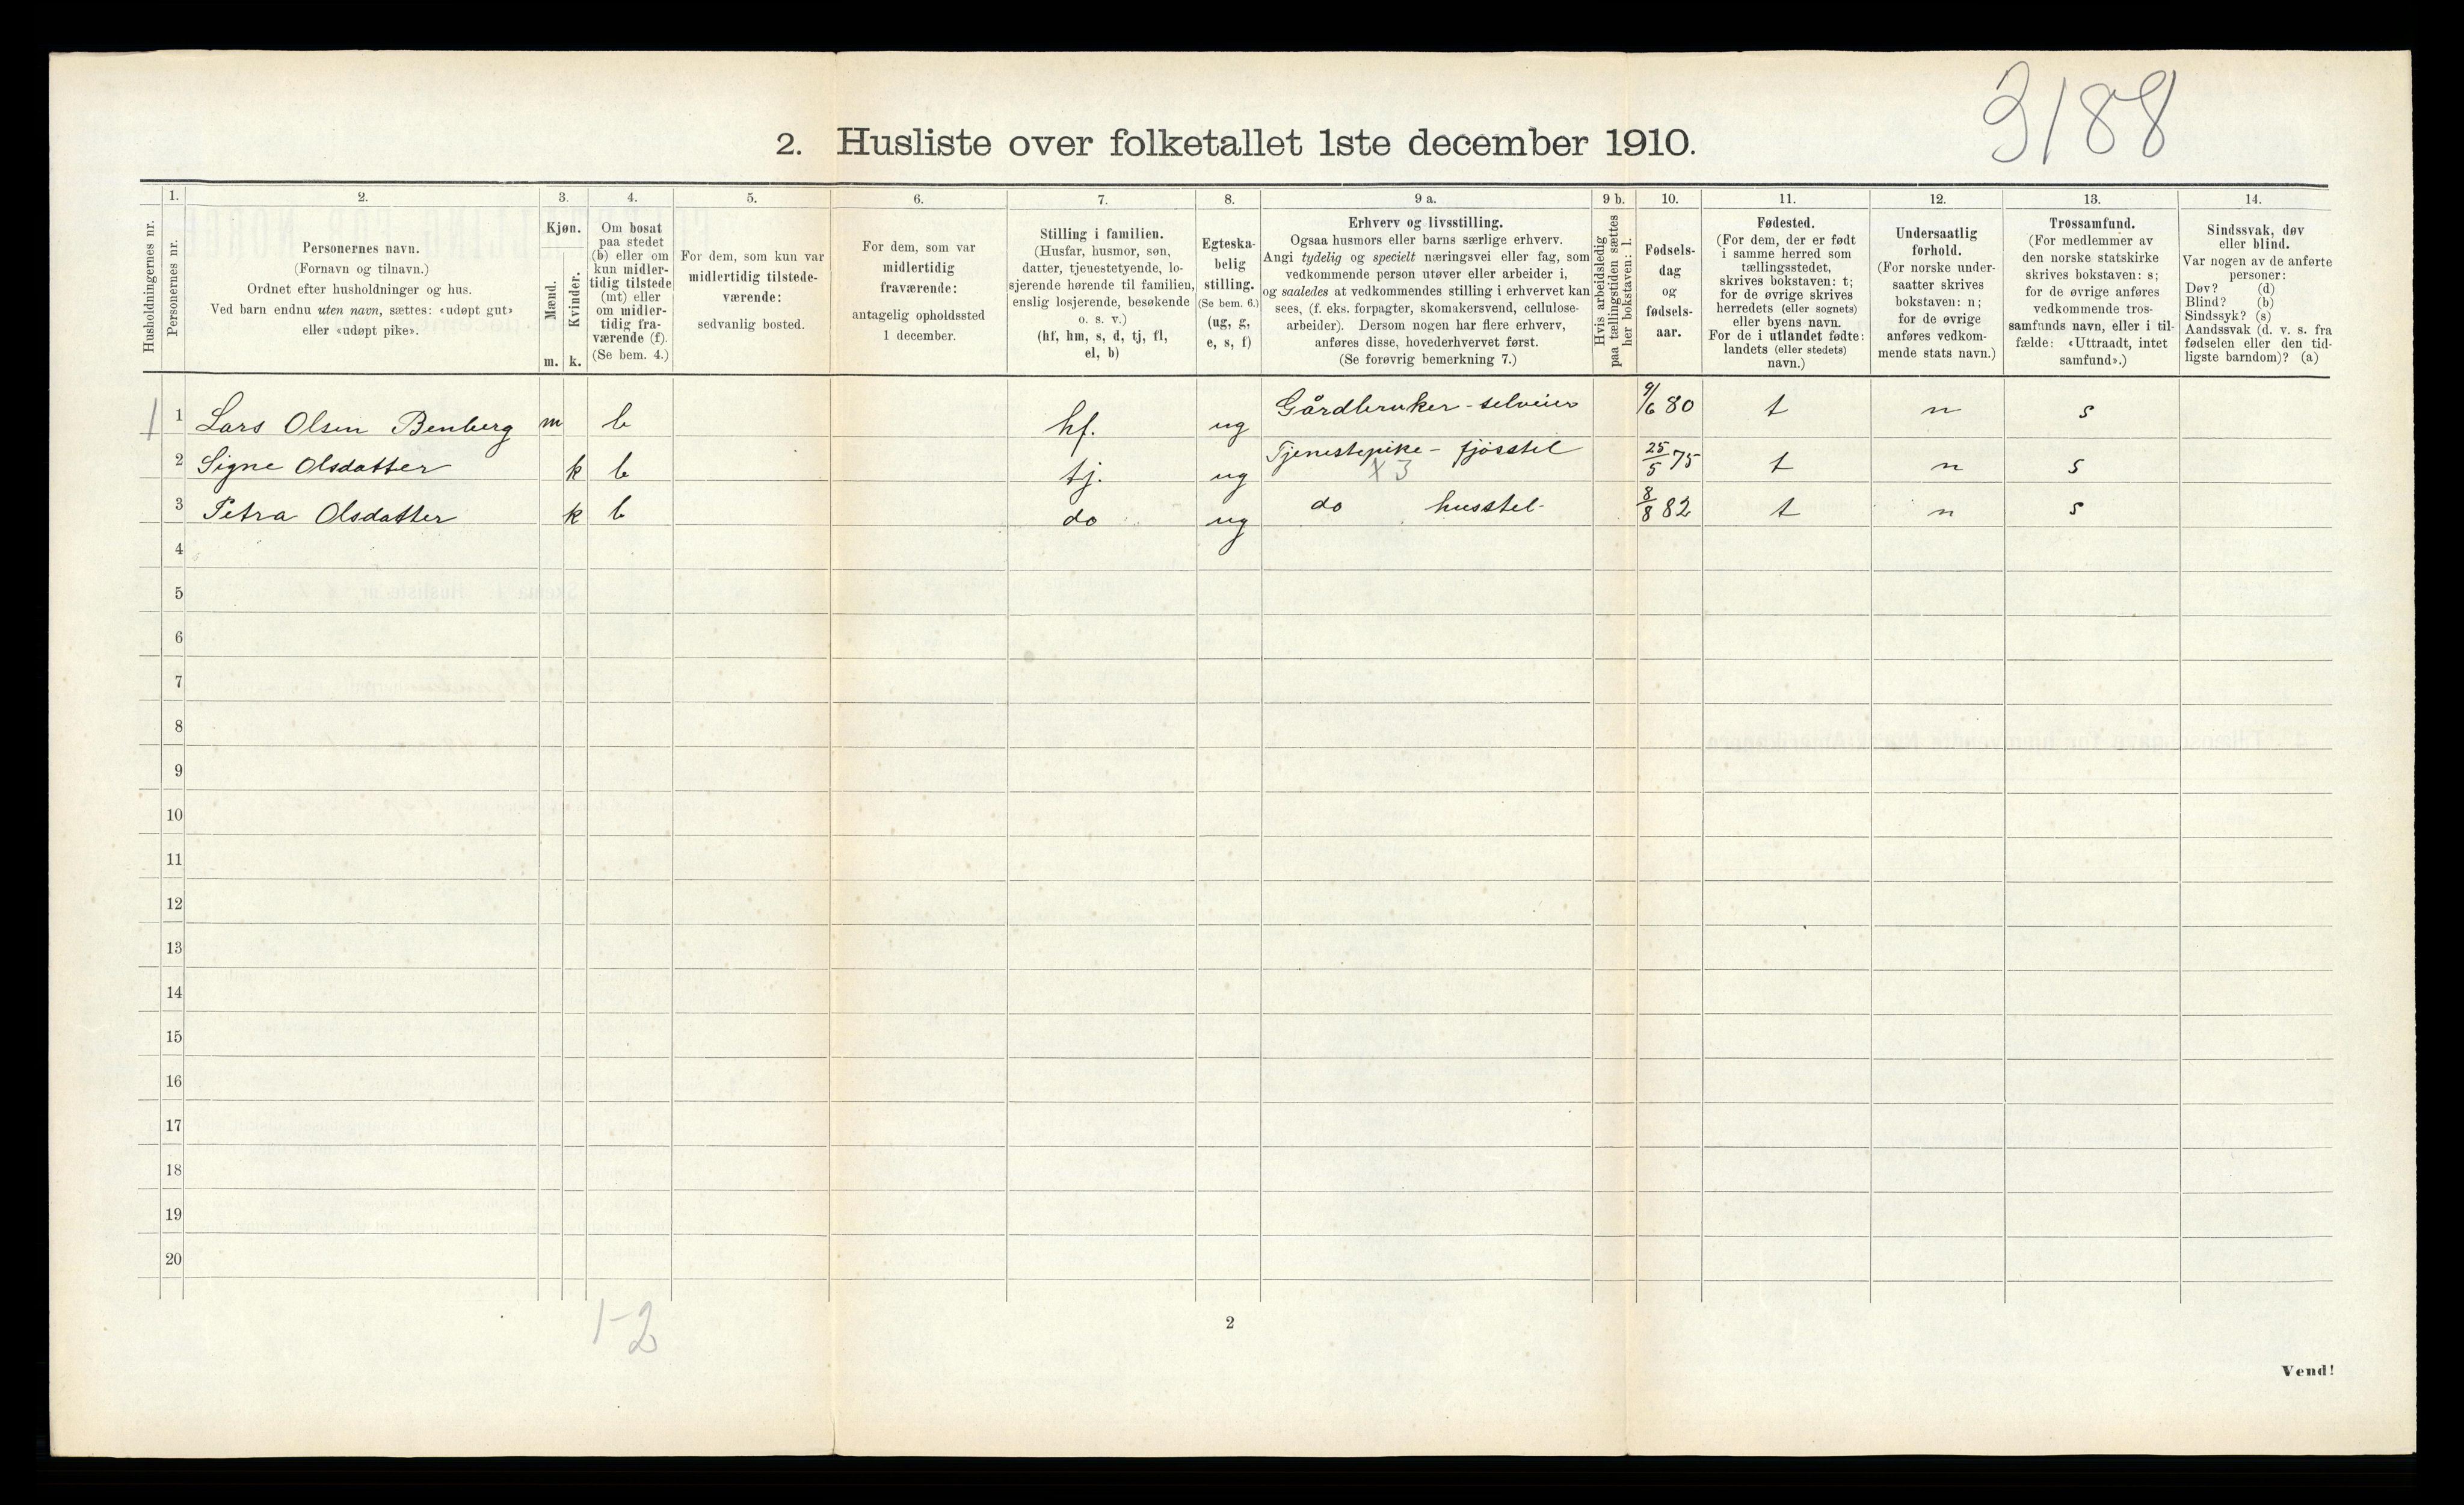 3188
2. Husliste over folketallet 1ste december 1910.
Husholdningernes nr.
1.
Personernes nr.
2.
Personernes navn.
(Fornavn og tilnavn.)
Ordnet efter husholdninger og hus.
Ved barn endnu uten navn, sættes: «udøpt gut»
eller «udøpt pike».
3.
Kjøn.
Mænd.
Kvinder.
m. k.
4.
Om bosat
paa stedet
(b) eller om
kun midler-
tidig tilstede
(mt) eller
om midler-
tidig fra-
værende (f).
(Se bem. 4.)
5.
For dem, som kun var
midlertidig tilstede-
værende:
sedvanlig bosted.
6.
For dem, som var
midlertidig
fraværende:
antagelig opholdssted
1 december.
7.
Stilling i familien.
(Husfar, husmor, søn,
datter, tjenestetyende, lo-
sjerende hørende til familien,
enslig losjerende, besøkende
o. s. v.)
(hf, hm, s, d, tj, fl,
el, b)
8.
Egteska-
belig
stilling.
(Se bem. 6.)
(ug, g,
e, s, f)
9 a.
Erhverv og livsstilling.
Ogsaa husmors eller barns særlige erhverv.
Angi tydelig og specielt næringsvei eller fag, som
vedkommende person utøver eller arbeider i,
og saaledes at vedkommendes stilling i erhvervet kan
sees, (f. eks. forpagter, skomakersvend, cellulose-
arbeider). Dersom nogen har flere erhverv,
anføres disse, hovederhvervet først.
(Se forøvrig bemerkning 7.)
9 b.
Hvis arbeidsledig
paa tællingstiden sættes
her bokstaven: l.
10.
Fødsels-
dag
og
fødsels-
aar.
11.
Fødested.
(For dem, der er født
i samme herred som
tællingsstedet,
skrives bokstaven: t;
for de øvrige skrives
herredets (eller sognets)
eller byens navn.
For de i utlandet fødte:
landets (eller stedets)
navn.)
12.
Undersaatlig
forhold.
(For norske under-
saatter skrives
bokstaven: n;
for de øvrige
anføres vedkom-
mende stats navn.)
13.
Trossamfund.
(For medlemmer av
den norske statskirke
skrives bokstaven: s;
for de øvrige anføres
vedkommende tros-
samfunds navn, eller i til-
fælde: «Uttraadt, intet
samfund».)
14.
Sindssvak, døv
eller blind.
Var nogen av de anførte
personer:
Døv? (d)
Blind? (b)
Sindssyk? (s)
Aandssvak (d. v. s. fra
fødselen eller den tid-
ligste barndom)? (a)
1 1 Lars Olsen Benberg m b hf. ug Gårdbruker - selveier 9/6 80 t n s
2 Signe Olsdatter k b tj. ug Tjenestepike - fjøsstel 25/5 75 t n s
X 3
3 Petra Olsdatter k b do ug do husstel- 8/8 82 t n s
4
5
6
7
8
9
10
11
12
13
14
15
16
17
18
19
20
1-2
2
Vend!